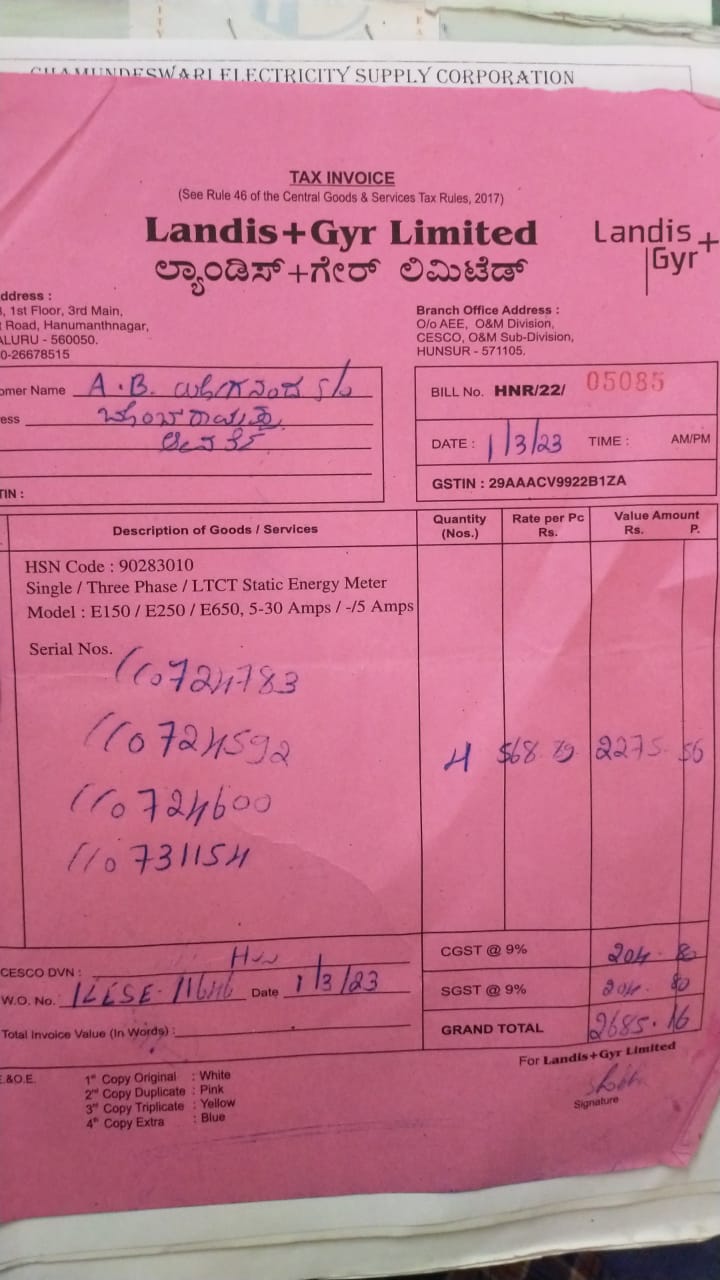 CHAMUNDESWARI ELECTRICITY SUPPLY CORPORATION
TAX INVOICE
(See Rule 46 of the Central Goods & Services Tax Rules, 2017)
Landis+Gyr Limited
ಲ್ಯಾಂಡಿಸ್+ಗೇರ್ ಲಿಮಿಟೆಡ್
Landis+
Gyr
ddress :
, 1st Floor, 3rd Main,
Road, Hanumanthnagar,
ALURU - 560050.
0-26678515
Branch Office Address :
O/o AEE, O&M Division,
CESCO, O&M Sub-Division,
HUNSUR - 571105.
omer Name A.B.
ess
TIN :
BILL No. HNR/22/ 05085
DATE : 1/3/23 TIME : AM/PM
GSTIN : 29AAACV9922B1ZA
Description of Goods / Services Quantity (Nos.) Rate per Pc Rs. Value Amount Rs. P.
HSN Code : 90283010
Single / Three Phase / LTCT Static Energy Meter
Model : E150 / E250 / E650, 5-30 Amps / -/5 Amps
Serial Nos.
110724783
110724592 4 568.89 2275.56
110724600
110731154
CGST @ 9% 204.80
SGST @ 9% 204.80
GRAND TOTAL 2685.16
CESCO DVN :
W.O. No. Date 1/3/23
Total Invoice Value (In Words) :
For Landis+Gyr Limited
Signature
E.&O.E.
1st Copy Original : White
2nd Copy Duplicate : Pink
3rd Copy Triplicate : Yellow
4th Copy Extra : Blue